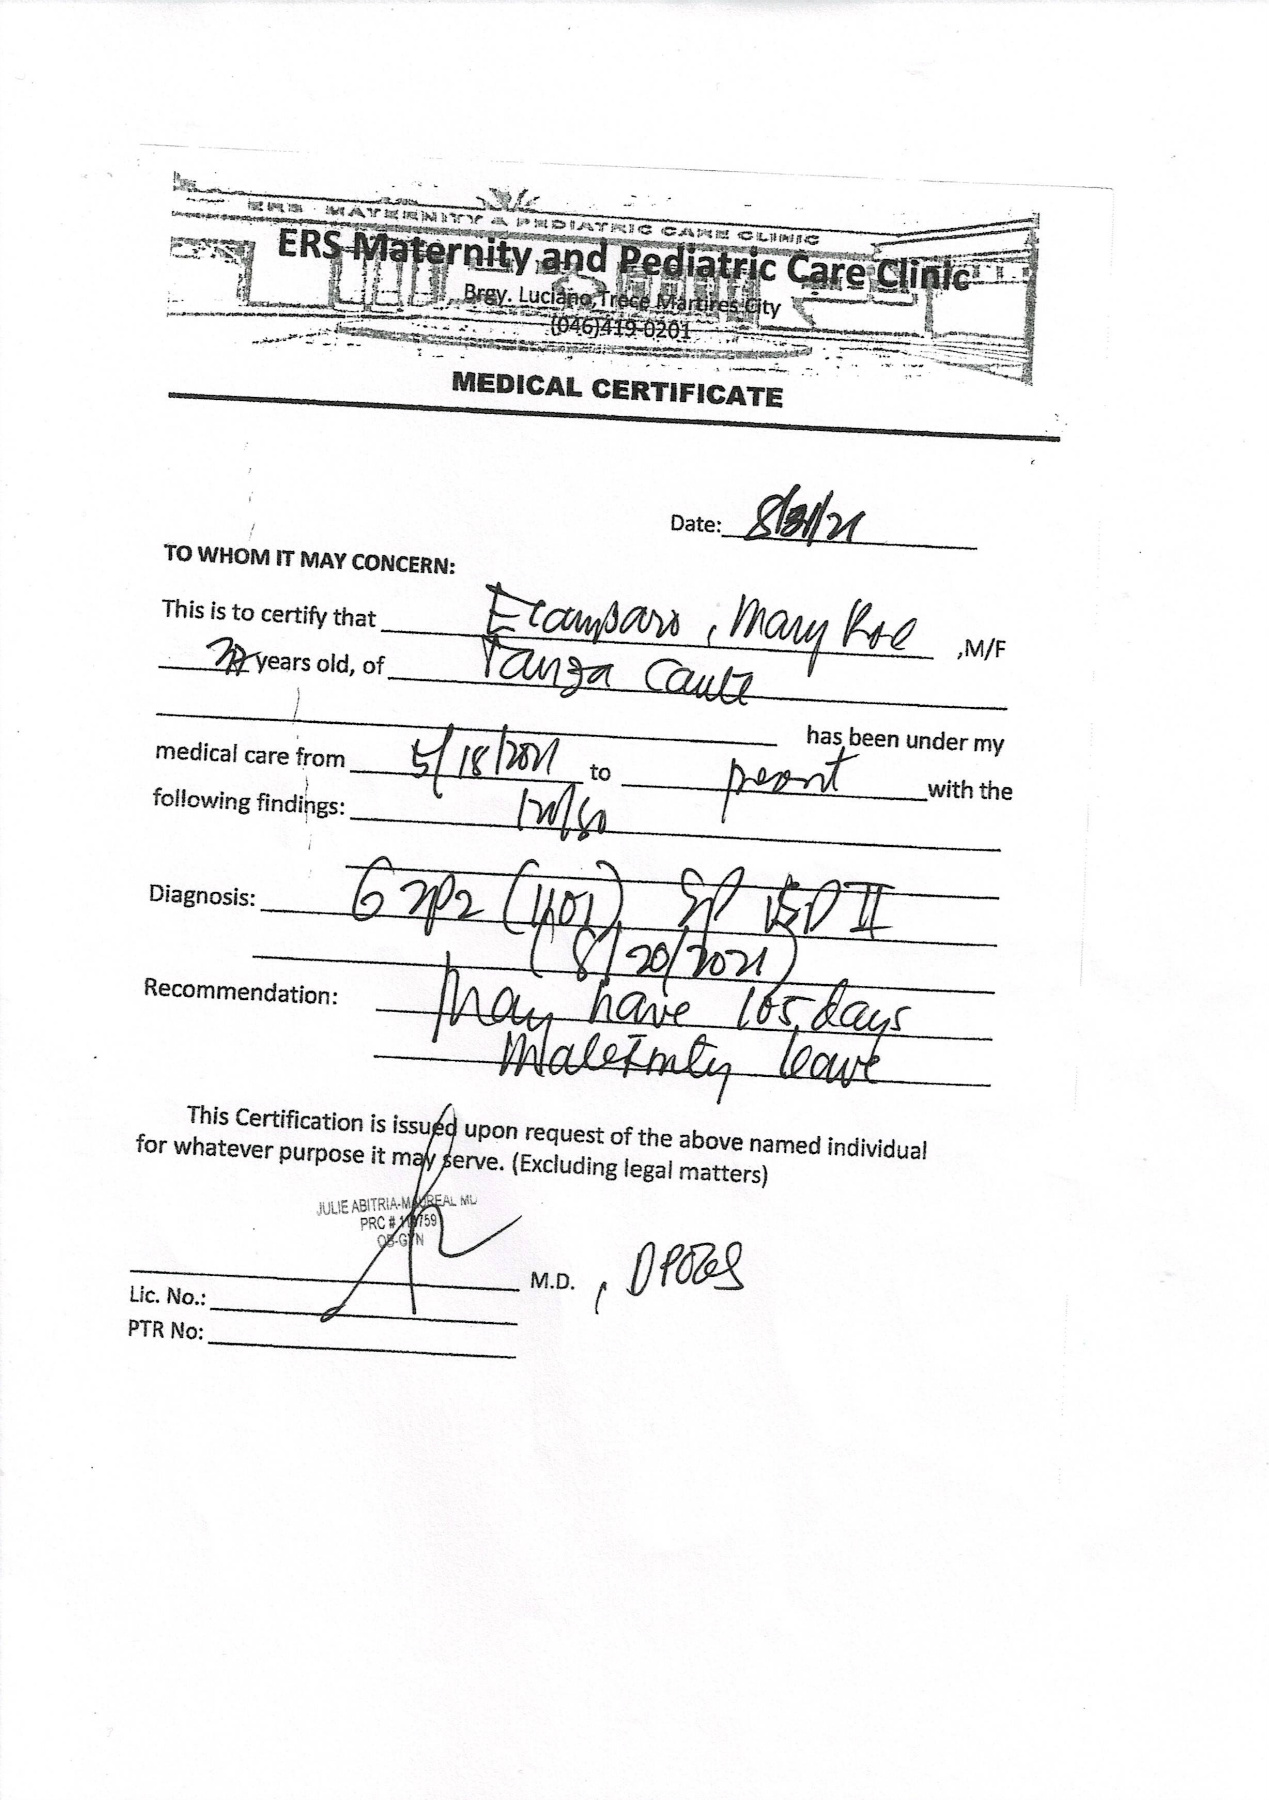 ERS MATERNITY & PEDIATRIC CARE CLINIC
ERS Maternity and Pediatric Care Clinic
Brgy. Luciano, Trece Martires City
(046)419-0201
MEDICAL CERTIFICATE
Date: 8/31/21
TO WHOM IT MAY CONCERN:
This is to certify that , Mary ,M/F
years old, of Tanza Cavite
has been under my
medical care from 5/18/2021 to present with the
following findings: 120/80
Diagnosis: G2P2 SP II
(8/20/2021)
Recommendation: May have 105 days
maternity leave
This Certification is issued upon request of the above named individual
for whatever purpose it may serve. (Excluding legal matters)
JULIE ABITRIA-MAUREAL MD
PRC #
OB-GYN
M.D. , DPOGS
Lic. No.:
PTR No: